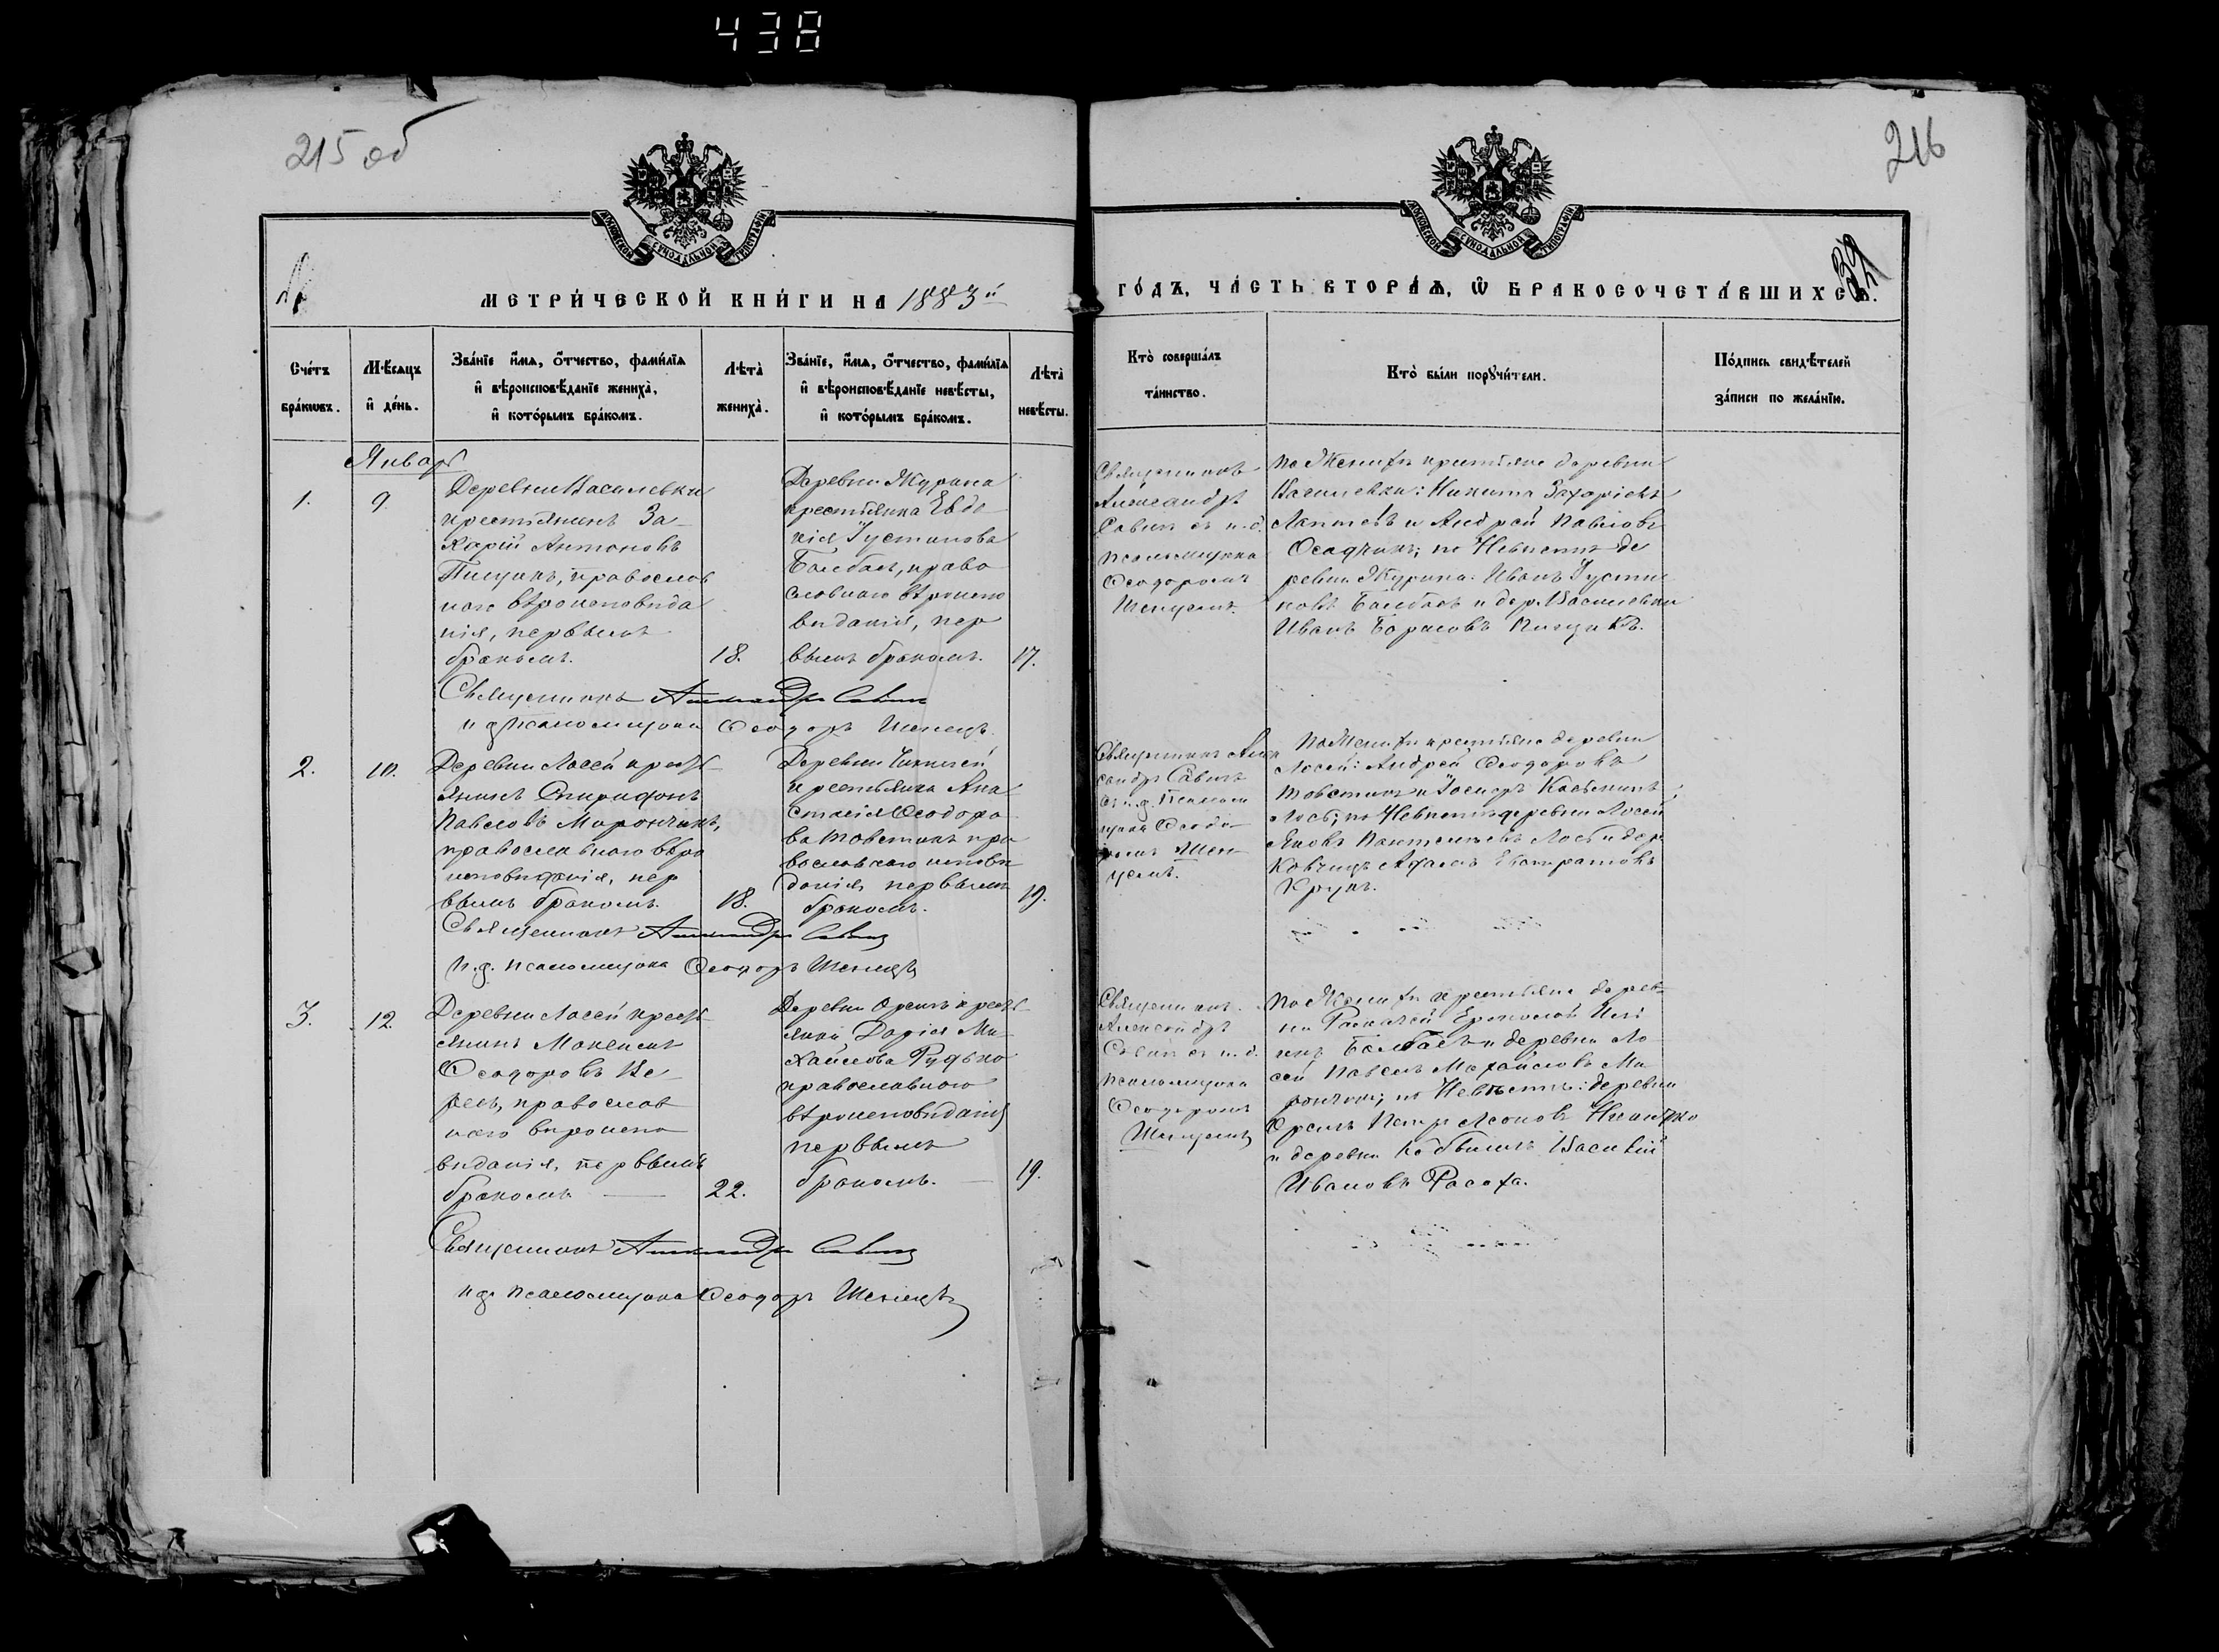 438
215 об
216
МОСКОВСКОЙ СѴНОДАЛЬНОЙ ТИПОГРАФІИ
МОСКОВСКОЙ СѴНОДАЛЬНОЙ ТИПОГРАФІИ
МЕТРИ́ЧЕСКОЙ КНИ́ГИ НА 1883й
ГО́ДЪ, ЧА́СТЬ ВТОРА́Ѧ, Ѡ҆ БРАКОСОЧЕТА́ВШИХСѦ.
Сче́тъ бра́ковъ.
Мѣ́сяцъ и҆ де́нь.
Зва́нїе и҆́мѧ, ѻ҆́тчество, фами́лїѧ и҆ вѣроисповѣ́данїе жениха̀, и҆ кото́рымъ бра́комъ.
Лѣта̀ жениха̀.
Зва́нїе, и҆́мѧ, ѻ҆́тчество, фами́лїѧ и҆ вѣроисповѣ́данїе невѣ́сты, и҆ кото́рымъ бра́комъ.
Лѣта̀ невѣ́сты.
Кто̀ соверша́лъ та́инство.
Кто̀ бы́ли порꙋчи́тели.
По́дпись свидѣ́телей за́писи по жела́нїю.
Январь
1.
9.
Деревни Василевки
крестьянинъ За-
харій Антоновъ
Пищикъ, православ
наго вѣроисповѣда
нія, первымъ
бракомъ.
18.
Деревни Журына
крестьянка Евдо
кія Іустинова
Балбасъ, право
славнаго вѣроиспо
вѣданія, пер
вымъ бракомъ.
17.
Священникъ
Александръ
Савичъ съ и.д.
псаломщика
Ѳеодоромъ
Шенцемъ.
По Женихѣ крестьяне деревни
Василевки: Никита Захаріевъ
Лаптевъ и Андрей Павловъ
Осадчикъ; по Невѣстѣ де
ревни Журына: Иванъ Густи
новъ Балбасъ и дер. Василевки
Иванъ Борисовъ Пищикъ.
Священникъ Александръ Савичъ
и д псаломщика Ѳеодоръ Шенецъ.
2.
10.
Деревни Лосей крест-
янинъ Спиридонъ
Павловъ Марончикъ,
православнаго вѣро
исповѣданія, пер
вымъ бракомъ.
18.
крестьянка Ана
стасія Ѳеодоро
ва Товстикъ пра
вославнаго исповѣ
данія, первымъ
бракомъ.
19.
Священникъ Алек
сандръ Савичъ
съ и.д. псалом
щика Ѳеодо
ромъ Шен
цемъ.
По Женихѣ крестьяне деревни
Лосей: Андрей Ѳеодоровъ
Лось; по Невѣстѣ деревни Лосей
Яковъ Пантелеевъ Лось и дер.
Крукъ.
Священникъ Александръ Савичъ
и.д. псаломщика Ѳеодоръ Шенецъ
3.
12.
Деревни Лосей крест-
янинъ Максимъ
Ѳеодоровъ Ве
ресъ, православ
наго вѣроиспо
вѣданія, первымъ
бракомъ
22.
Деревни Оремъ крест-
янка Дарія Ми-
хайлова Рудько
православнаго
вѣроисповѣданія
первымъ
бракомъ.
19.
Священникъ
Александръ
Савичъ съ и.д.
псаломщика
Ѳеодоромъ
Шенцемъ
По Женихѣ крестьяне дерев-
сей Павелъ Михайловъ Ма
рончикъ; по Невѣстѣ: деревни
и деревни Кобылъ Василій
Ивановъ Расоха.
Священникъ Александръ Савичъ
и д. псаломщика Ѳеодоръ Шенецъ